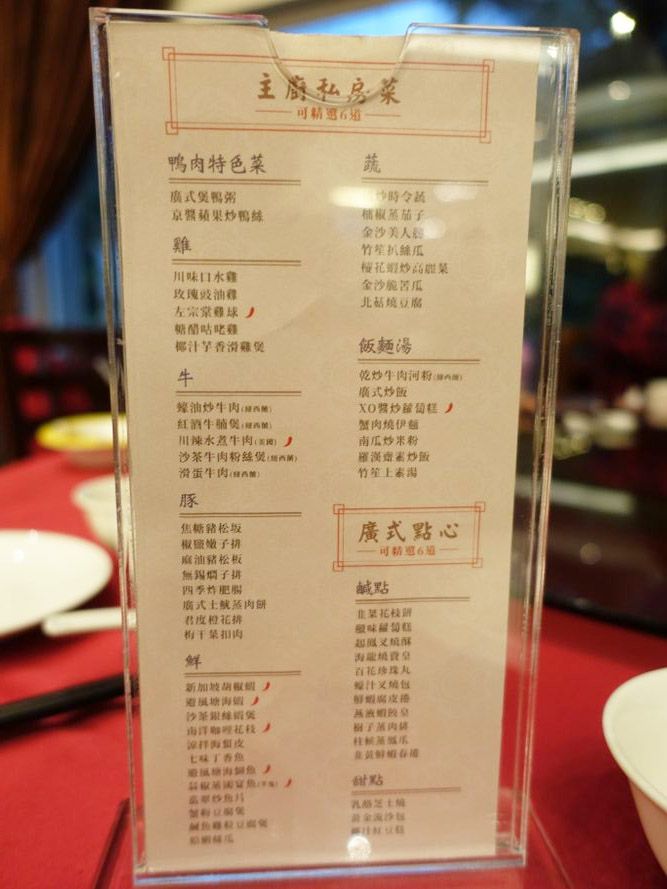 主廚私房菜
可精選6道
鴨肉特色菜
廣式煲鴨粥
京醬蘋果炒鴨絲
雞
川味口水雞
玫瑰豉油雞
左宗棠雞球
糖醋咕咾雞
椰汁芋香滑雞煲
牛
蠔油炒牛肉(紐西蘭)
紅酒牛腩煲(紐西蘭)
川辣水煮牛肉(美國)
沙茶牛肉粉絲煲(紐西蘭)
滑蛋牛肉(紐西蘭)
豚
焦糖豬松坂
椒鹽嫩子排
麻油豬松板
無錫燜子排
四季炸肥腸
廣式土魷蒸肉餅
君度橙花排
梅干菜扣肉
鮮
新加坡胡椒蝦
避風塘海蝦
沙茶銀絲蝦煲
南洋咖哩花枝
涼拌海蜇皮
七味丁香魚
避風塘海鯛魚
翡翠炒魚片
蟹粉豆腐煲
鹹魚雞粒豆腐煲
蛤蜊絲瓜
蔬
炒時令蔬
椒蒸茄子
金沙美人
竹笙扒絲瓜
櫻花蝦炒高麗菜
金沙脆苦瓜
北菇燒豆腐
飯麵湯
乾炒牛肉河粉(紐西蘭)
廣式炒飯
XO醬炒蘿蔔糕
蟹肉燒伊麵
南瓜炒米粉
羅漢齋素炒飯
竹笙上素湯
廣式點心
可精選6道
鹹點
韭菜花枝餅
臘味蘿蔔糕
起鳳叉燒酥
海龍燒賣皇
百花珍珠丸
蠔汁叉燒包
鮮蝦腐皮捲
燕液蝦餃皇
樹子蒸肉排
柱候蒸鳳爪
韭黃鮮蝦春捲
甜點
乳酪芝士燒
黃金流沙包
椰汁紅豆糕